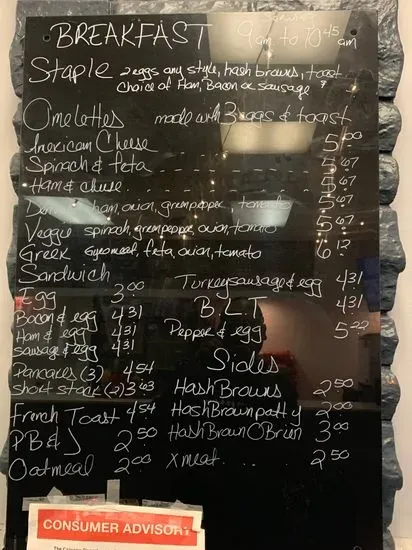 BREAKFAST 9am to 10 45 am
Staple 2 eggs any style, hash browns, toast
choice of Ham, Bacon or sausage
Omelettes made with 3 eggs & toast
American Cheese 5.00
Spinach & feta 5.67
Ham & chuse 5.67
ham, onion, greenpepper, tomato 5.67
Veggie spinach, greenpepper, onion, tomato 5.67
Greek Gyromeat, feta, onion, tomato 6.12
Sandwich
Egg 3.00
Bacon & egg 4.31
Ham & egg 4.31
sausage & egg 4.31
Pancakes (3) 4.54
short stack (2) 3.63
French Toast 4.54
PB & J 2.50
Oatmeal 2.00
Turkeysausage & egg 4.31
B.L.T 4.31
Pepper & egg 5.22
Sides
HashBrowns 2.50
HashBrown patty 2.00
HashBrown O'Brien 3.00
x meat.... 2.50
CONSUMER ADVISORY